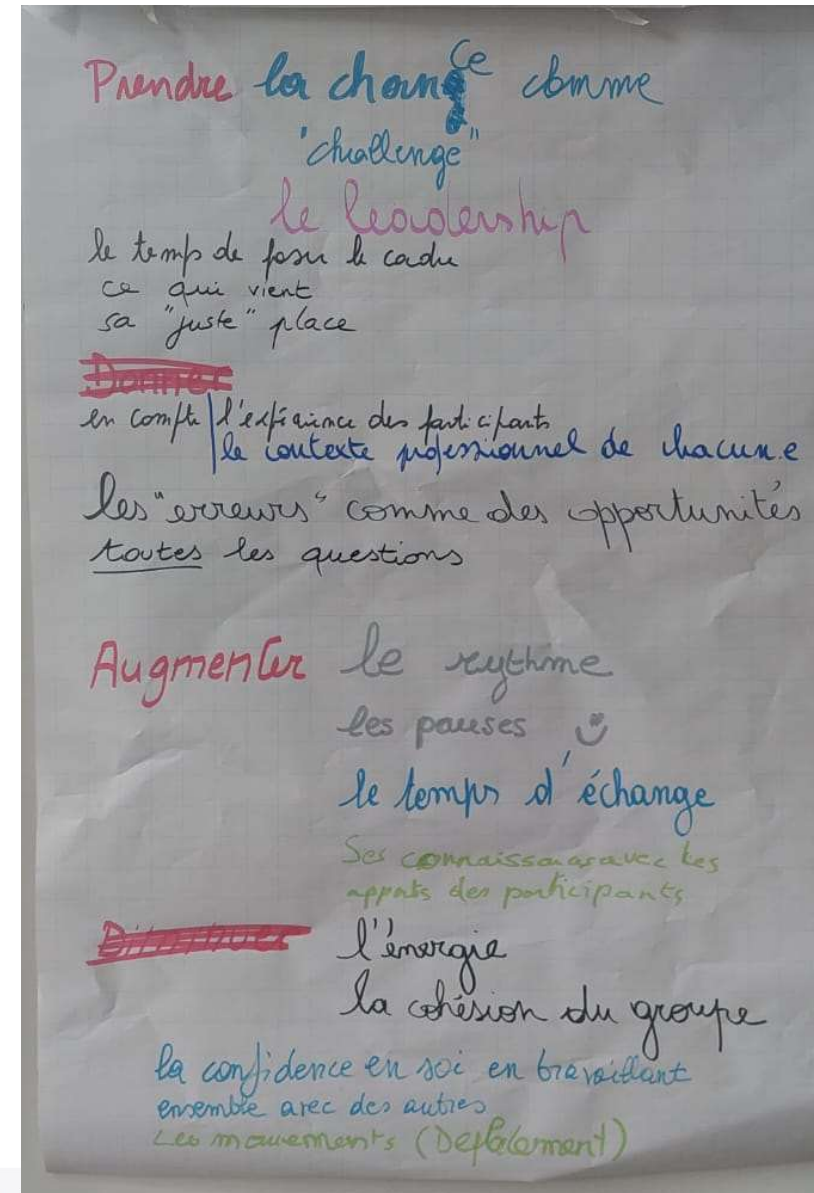 Prendre la chance comme
"challenge"
le leadership
le temps de poser le cadre
ce qui vient
sa "juste" place
Donner
en compte l'expérience des participants
le contexte professionnel de chacun.e
les "erreurs" comme des opportunités
toutes les questions
Augmenter le rythme
les pauses
le temps d'échange
Ses connaissances avec les
apports des participants
Diminuer
l'énergie
la cohésion du groupe
la confidence en soi en travaillant
ensemble avec des autres
Les mouvements (Déplacement)